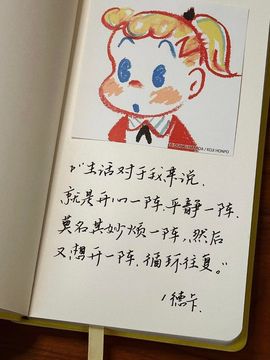 “生活对于我来说,
就是开心一阵,平静一阵,
莫名其妙烦一阵,然后
又想开一阵,循环往复。”
/德卡